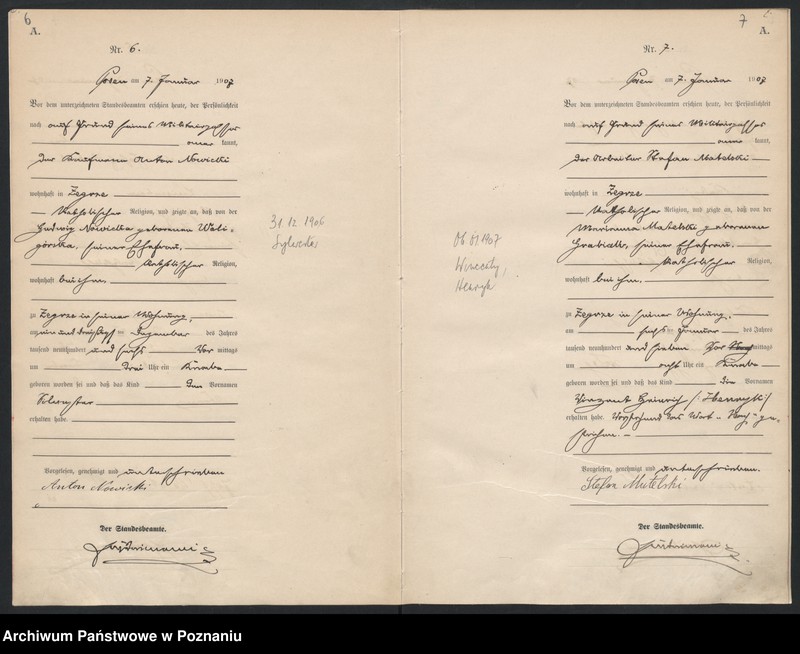 6
A.
Nr. 6.
Posen am 7. Januar 1907
Vor dem unterzeichneten Standesbeamten erschien heute, der Persönlichkeit
nach auf Grund seines Militairpasses
kannt,
der Kaufmann Anton Nowicki
wohnhaft in Zegrze
Katholischer Religion, und zeigte an, daß von der
Hedwig Nowicka geborenen
seiner Ehefrau,
Katholischer Religion,
wohnhaft bei ihm,
zu Zegrze in seiner Wohnung,
am ein und dreißigsten Dezember des Jahres
tausend neunhundert und sechs Vor mittags
um drei Uhr ein Knabe
geboren worden sei und daß das Kind den Vornamen
Sylvester
erhalten habe.
Vorgelesen, genehmigt und unterschrieben
Anton Nowicki
Der Standesbeamte.
31.12.1906
Sylwester
7
A.
Nr. 7.
Posen am 7. Januar 1907
Vor dem unterzeichneten Standesbeamten erschien heute, der Persönlichkeit
nach auf Grund seines Militairpasses
kannt,
der Arbeiter Stefan Matelski
wohnhaft in Zegrze
Katholischer Religion, und zeigte an, daß von der
Marianna Matelski geborenen
seiner Ehefrau,
Katholischer Religion,
wohnhaft bei ihm,
zu Zegrze in seiner Wohnung,
am sechs ten Januar des Jahres
tausend neunhundert und sieben Vor mittags
um acht Uhr ein Knabe
geboren worden sei und daß das Kind die Vornamen
Vinzent Heinrich /: Henryk :/
erhalten habe. Vorstehend das Wort „Nach" ge-
strichen. –
Vorgelesen, genehmigt und unterschrieben.
Stefan Matelski
Der Standesbeamte.
06 01 1907
Wincenty,
Henryk
Archiwum Państwowe w Poznaniu